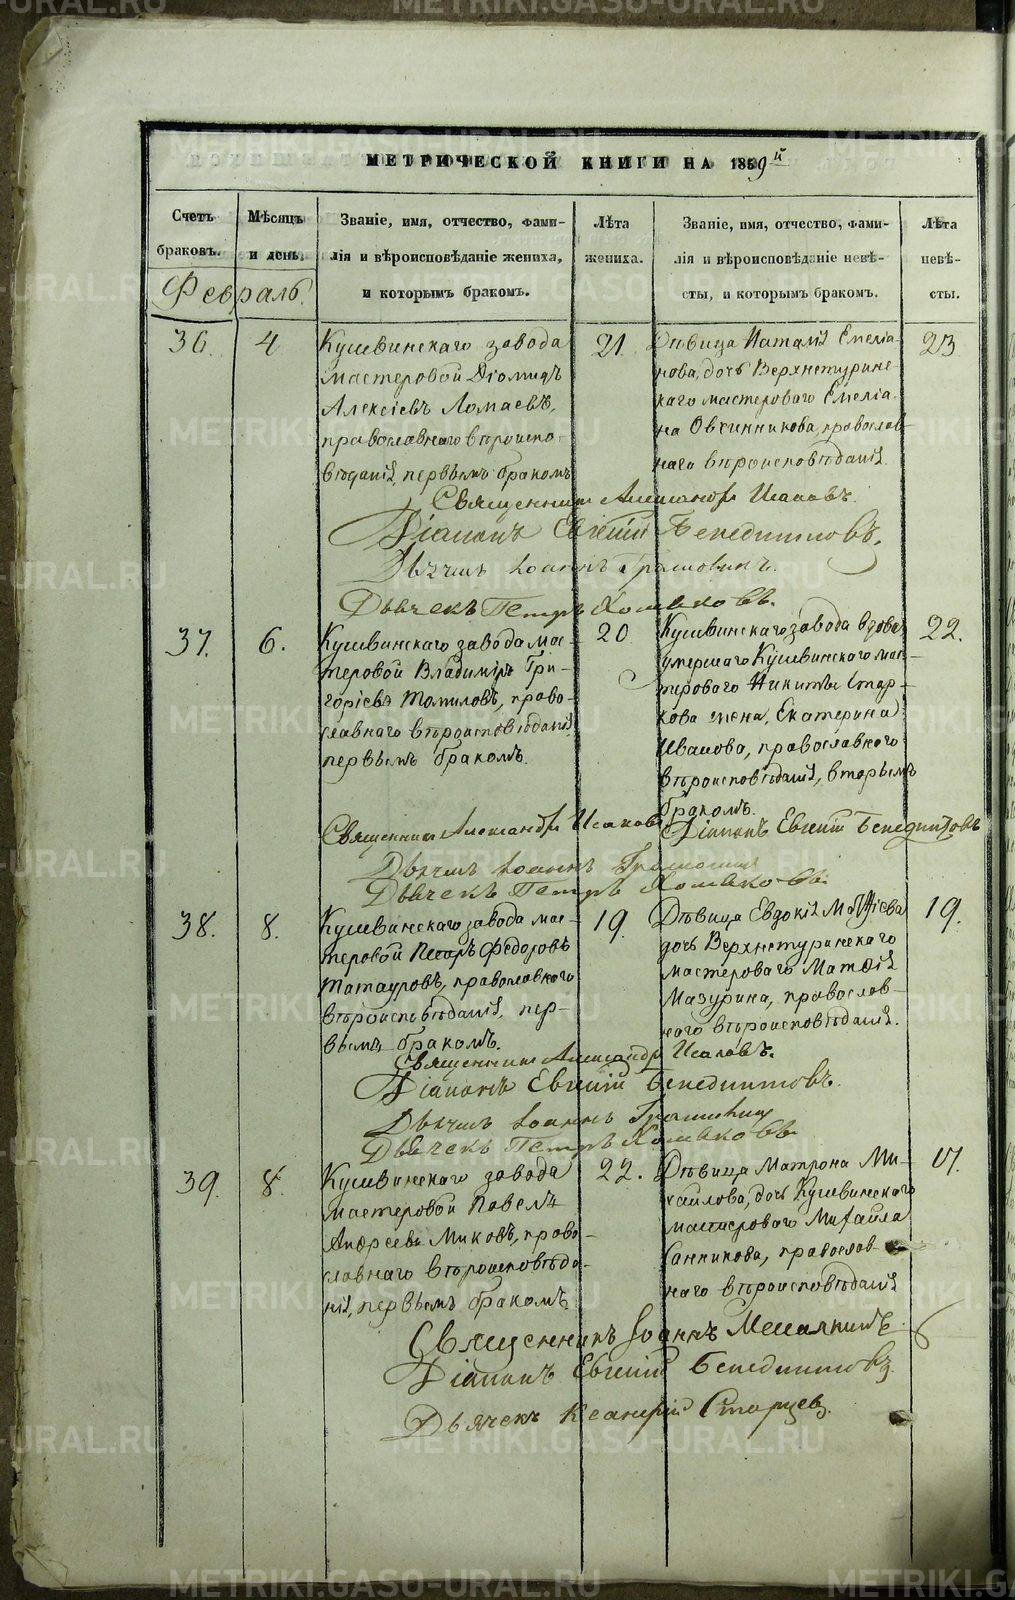 МЕТРИЧЕСКОЙ КНИГИ НА 1859й
Счетъ браковъ.
Мѣсяцъ и день.
Званіе, имя, отчество, фами-
лія и вѣроисповѣданіе жениха,
и которымъ бракомъ.
Лѣта жениха.
Званіе, имя, отчество, фами-
лія и вѣроисповѣданіе невѣ-
сты, и которымъ бракомъ.
Лѣта невѣ-
сты.
Февраль.
36.
4
Кушвинскаго завода
мастеровой Діомидъ
Алексіевъ Ломаевъ,
православнаго вѣроиспо-
вѣданія, первымъ бракомъ
21
Дѣвица Наталія Емеліа-
нова, дочь Верхнетуринс
каго мастероваго Емеліа
на Овчинникова, православ-
наго вѣроисповѣданія.
23
Священникъ Александръ Исаковъ.
Діаконъ Евгеній Бенедиктовъ.
Дьячекъ Іоаннъ
Дьячекъ Петръ Хомяковъ.
37.
6.
Кушвинскаго завода мас-
теровой Владиміръ Гри-
горіевъ Томиловъ, право-
славнаго вѣроисповѣданія,
первымъ бракомъ.
20
Кушвинскаго завода вдова,
умершаго Кушвинскаго мас-
тероваго Никиты Стар-
кова жена, Екатерина
Иванова, православнаго
вѣроисповѣданія, вторымъ
бракомъ.
22.
Священникъ Александръ Исаковъ
Діаконъ Евгеній Бенедиктовъ
Дьячекъ Іоаннъ
Дьячекъ Петръ Хомяковъ.
38.
8.
Кушвинскаго завода мас-
теровой Петръ Федоровъ
Татауровъ, православнаго
вѣроисповѣданія, пер-
вымъ бракомъ.
19.
Дѣвица Евдокія Матѳіева
дочь Верхнетуринскаго
мастероваго Матѳія
Мазурина, православ-
наго вѣроисповѣданія.
19.
Священникъ Александръ Исаковъ.
Діаконъ Евгеній Бенедиктовъ.
Дьячекъ Іоаннъ
Дьячекъ Петръ Хомяковъ
39.
8.
Кушвинскаго завода
мастеровой Павелъ
Андреевъ Миковъ, право-
славнаго вѣроисповѣда-
нія, первымъ бракомъ
22.
Дѣвица Матрона Ми-
хайлова, дочь Кушвинскаго
мастероваго Михаила
Санникова, православ-
наго вѣроисповѣданія
17.
Священникъ Іоаннъ
Діаконъ Евгеній Бенедиктовъ
Дьячекъ Старцевъ.
METRIKI.GASO-URAL.RU